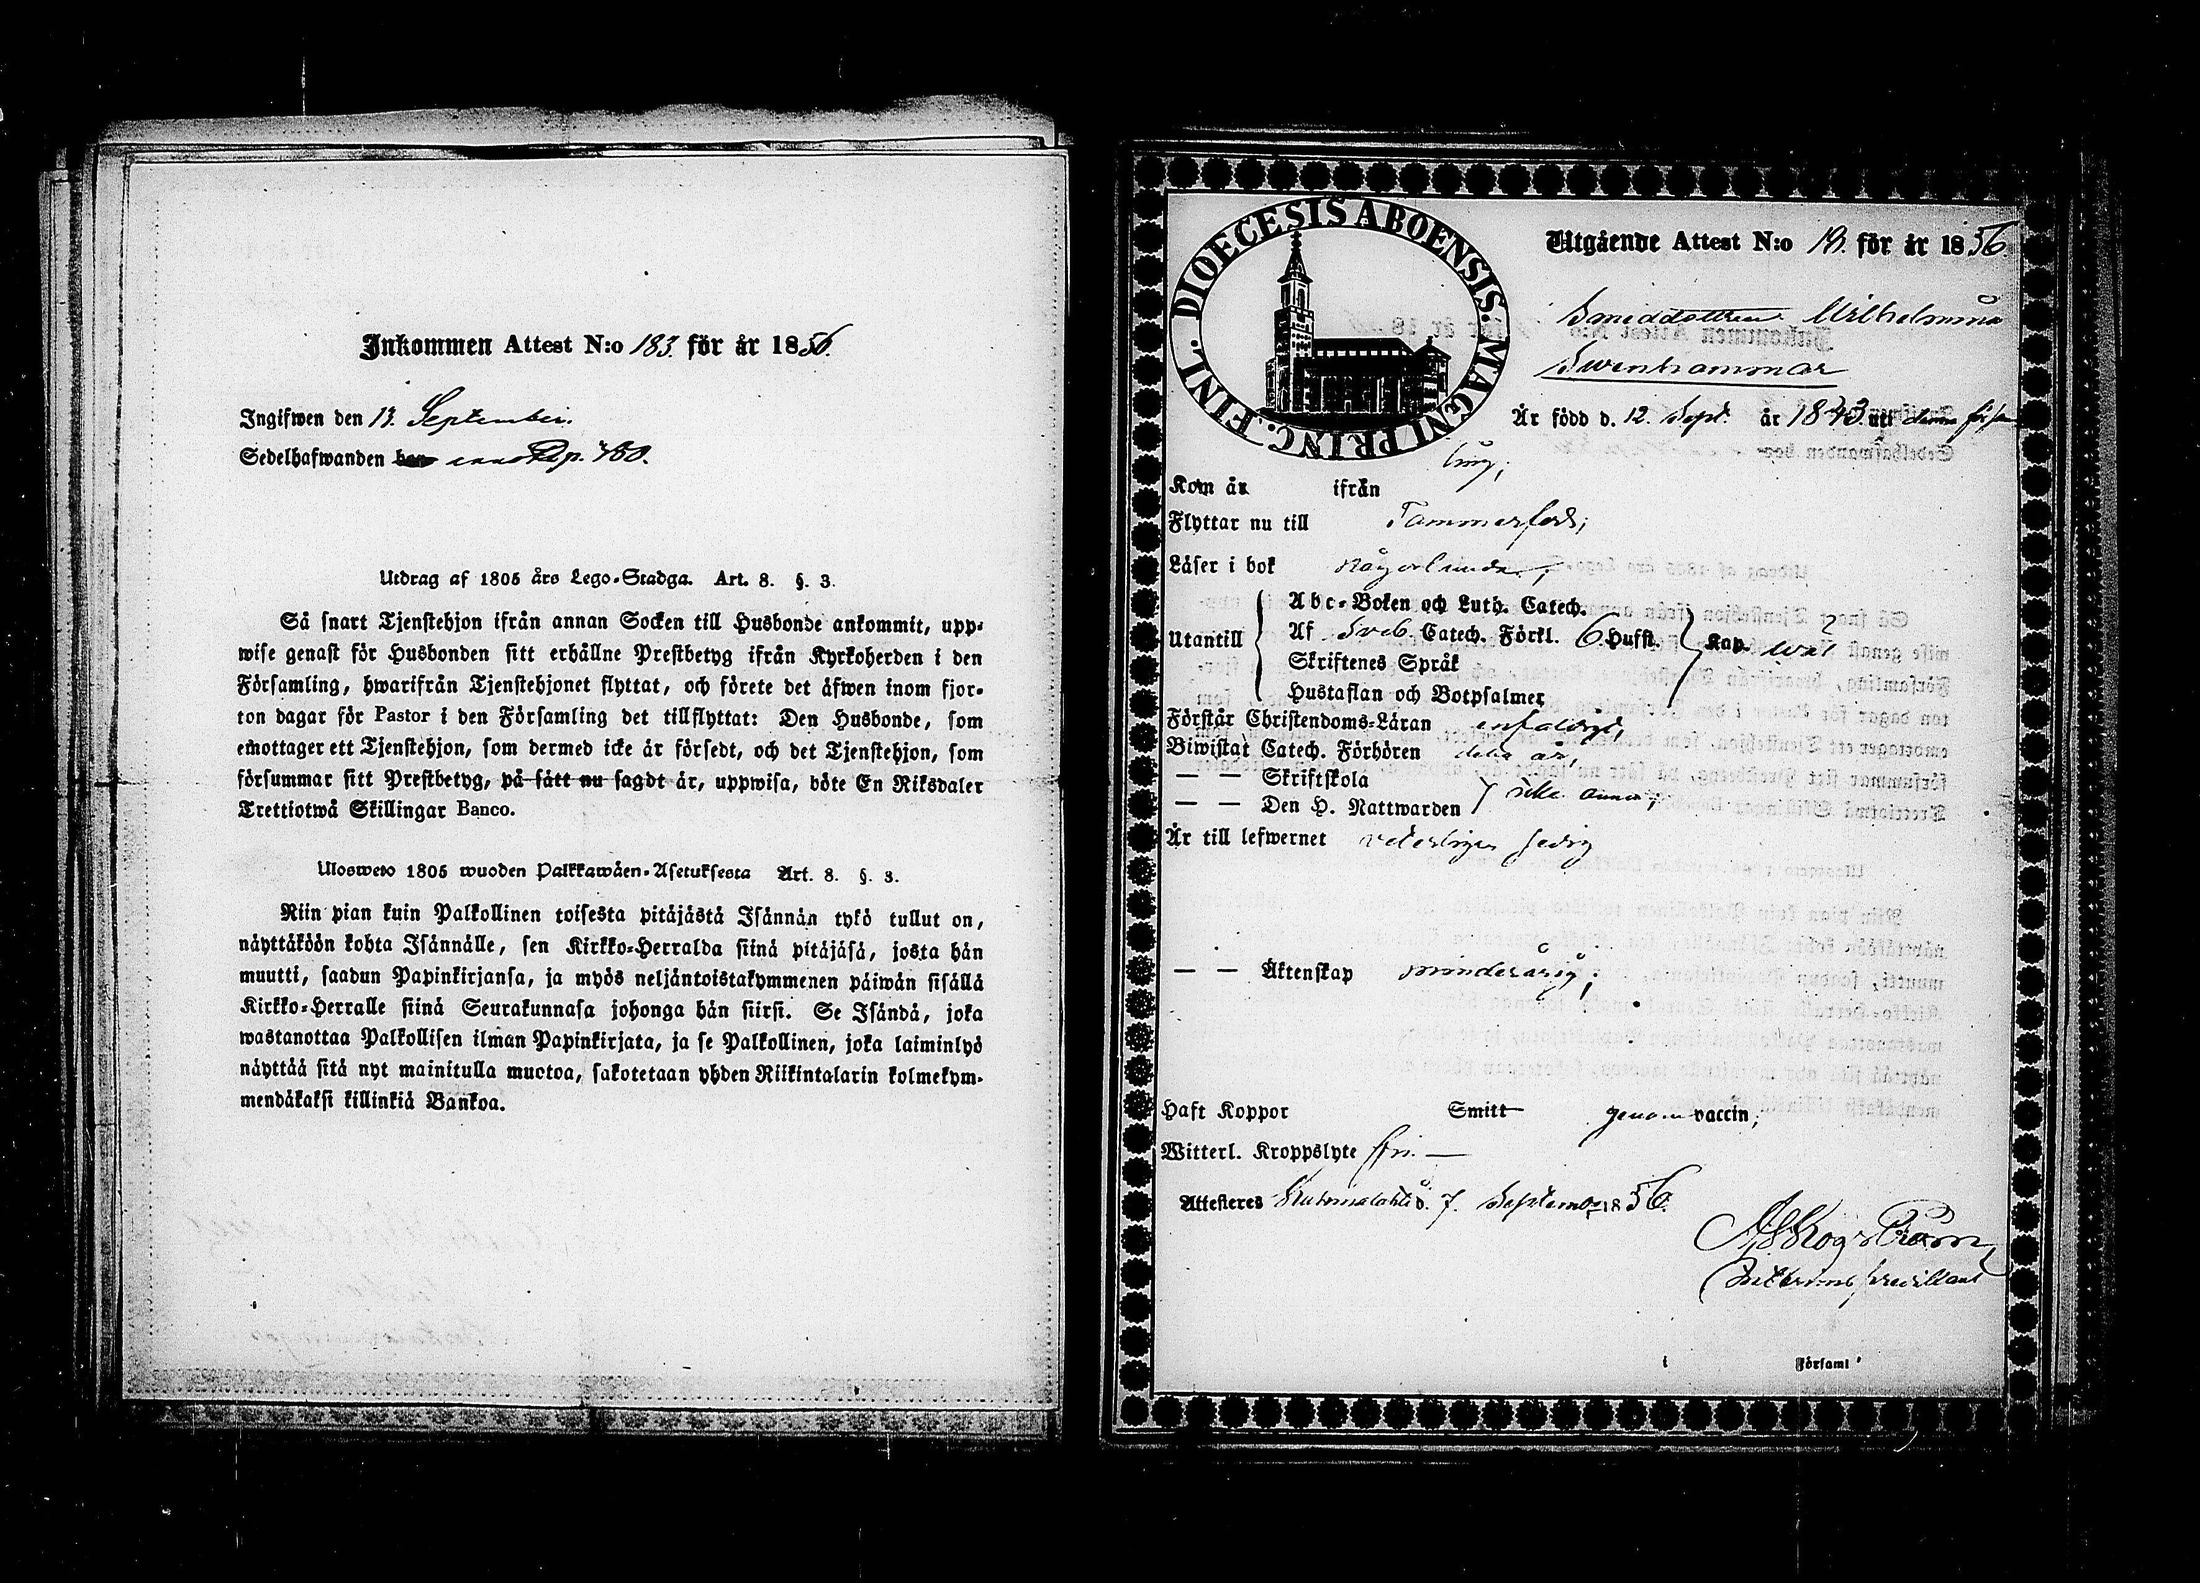 Inkommen Attest N:o 183. för år 1856.
Ingifwen den 13. September.
Sedelhafwanden pag. 760.
Utdrag af 1805 års Lego-Stadga. Art. 8. §. 3.
Så snart Tjenstehjon ifrån annan Socken till Husbonde ankommit, upp-
wise genast för Husbonden sitt erhållne Prestbetyg ifrån Kyrkoherden i den
Församling, hwarifrån Tjenstehjonet flyttat, och förete det äfwen inom fjor-
ton dagar för Pastor i den Församling det tillflyttat: Den Husbonde, som
emottager ett Tjenstehjon, som dermed icke är försedt, och det Tjenstehjon, som
försummar sitt Prestbetyg, på sätt nu sagdt är, uppwisa, böte En Riksdaler
Trettiotwå Skillingar Banco.
Ulosweto 1805 wuoden Palkkawäen-Asetuksesta Art. 8. §. 3.
Niin pian kuin Palkollinen toisesta pitäjästä Isännän tykö tullut on,
näyttäköön kohta Isännälle, sen Kirkko-Herralda siinä pitäjäsä, josta hän
muutti, saadun Papinkirjansa, ja myös neljäntoistakymmenen päiwän sisällä
Kirkko-Herralle siinä Seurakunnasa johonga hän siirsi. Se Isändä, joka
wastanottaa Palkollisen ilman Papinkirjata, ja se Palkollinen, joka laiminlyö
näyttää sitä nyt mainitulla muotoa, sakotetaan yhden Riikintalarin kolmekym-
mendäkaksi killinkiä Bankoa.
DIOECESIS ABOENSIS. MAGNI PRINC. FINL.
Utgående Attest N:o 18. för år 1856.
Smeddottren Wilhelmina
Swenhammar
Är född d. 12 Sept. år 1843. uti denna försam
ling;
Kom år ifrån
Flyttar nu till Tammerfors;
Läser i bok någorlunda;
Utantill
Abc-Boken och Luth. Catech.
Af Sveb. Catech. Förkl. 6 Hufst. Kap. wäl
Skriftenes Språk
Hustaflan och Botpsalmer
Förstår Christendoms-Läran enfaldigt,
Biwistat Catech. Förhören detta år,
— — Skriftskola
— — Den H. Nattwarden icke ännu;
Är till lefwernet sedig
— — Äktenskap minderårig;
Haft Koppor Smitt genom vaccin;
Witterl. Kroppslyte fri. —
Attesteres Kuhmalahti d. 7. September 1856.
Skogström,
Församl